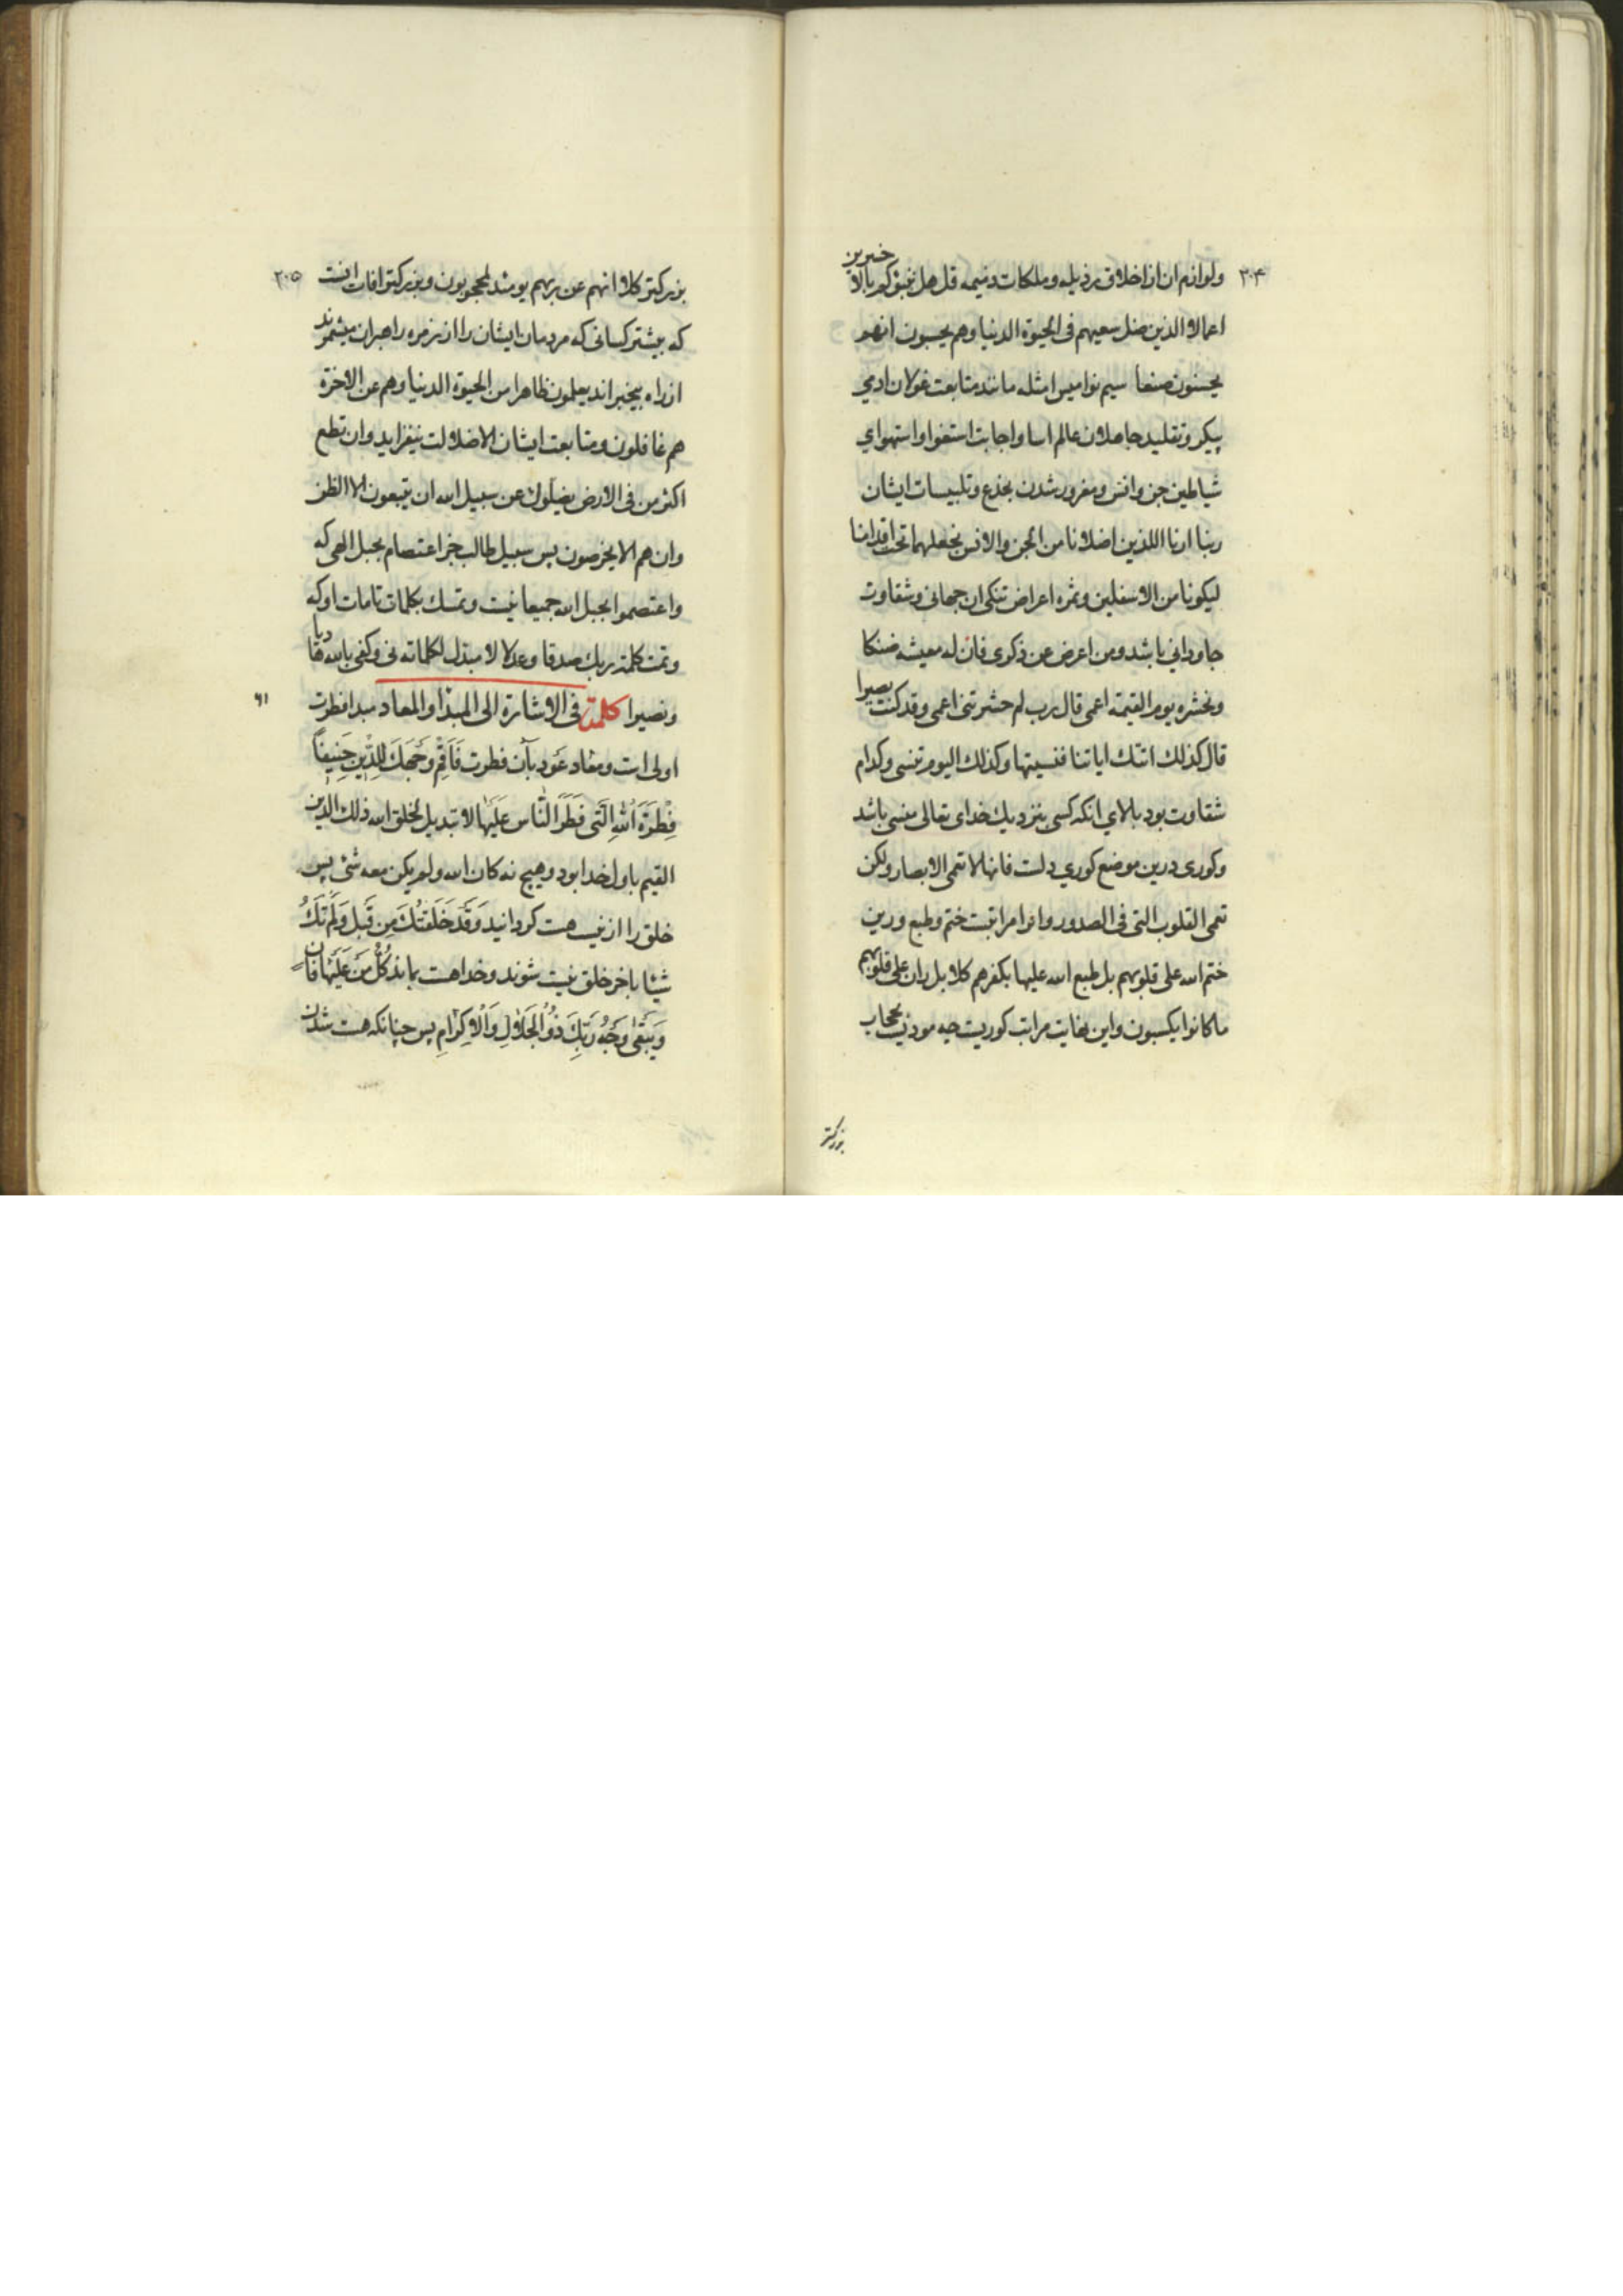 ۲۰۴
ولوازم ان از اخلاق رذیله و ملکات ذمیمه قل هل ننبئکم بالاخسرین
اعمالا الذین ضل سعیهم فی الحیوة الدنیا وهم یحسبون انهم
یحسنون صنعا سیم نوامیس امثله مانند متابعت غولان ادمی
پیکر و تقلید جاهلان عالم اسا و اجابت استغوا و استهوای
شیاطین جن و انس و مغرور شدن بخدع و تلبیسات ایشان
ربنا ارنا اللذین اضلانا من الجن والانس نجعلهما تحت اقدامنا
لیکونا من الاسفلین و ثمره اعراض تنکی ان جهانی و شقاوت
جاودانی باشد ومن اعرض عن ذکری فان له معیشه ضنکا
ونحشره یوم القیمة اعمی قال رب لم حشرتنی اعمی وقد کنت بصیرا
قال کذلك اتتك ایاتنا فنسیتها وکذلك الیوم تنسی وکدام
شقاوت بود بالای انکه کسی بنزدیك خدای تعالی منسی باشد
وکوری درین موضع کوری دلست فانها لا تعمی الابصار ولکن
تعمی القلوب التی فی الصدور وانرا مراتبست ختم وطبع ورین
ختم الله علی قلوبهم بل طبع الله علیها بکفرهم کلا بل ران علی قلوبهم
ماکانوا یکسبون واین بغایت مراتب کوریست چه مودیست بحجاب
بزرکتر
۲۰۵
بزرکتر کلا انهم عن ربهم یومئذ لمحجوبون وبزرکترافات انست
که بیشتر کسانی که مردمان ایشان را از زمره راهبران میشمرند
از راه بیخبراند یعلمون ظاهرا من الحیوة الدنیا وهم عن الاخرة
هم غافلون و متابعت ایشان الا ضلالت نیفزاید وان تطع
اکثر من فی الارض یضلوك عن سبیل الله ان یتبعون الا الظن
وان هم الا یخرصون پس سبیل طالب جز اعتصام بحبل الهی که
واعتصموا بحبل الله جمیعا نیست وتمسك بکلمات تامات او که
وتمت کلمة ربك صدقا وعدلا لا مبدل لکلماته نی وکفی بالله هادیا
ونصیرا کلمة فی الاشارة الی المبدا والمعاد مبدا فطرت
۶۱
اولی است ومعاد عود بآن فطرت فَاَقِمْ وَجْهَكَ لِلدِّینِ حَنِیفًا
فِطْرَةَ اللّٰهِ الَّتی فَطَرَ النَّاس عَلَیْهٰا لا تبدیل لخلق الله ذلك الدین
القیم باول خدا بود وهیچ نه کان الله ولم یکن معه شئ پس
خلق را از نیست هست کردانید وَقَدْ خَلَقْتُكَ مِن قَبْل وَلَمْ تَكُ
شیئا باخر خلق نیست شوند وخدا هست بماند کُلُّ مَنْ عَلَیْهٰا فَانٍ
وَیَبْقٰی وَجْهُ رَبِّكَ ذُو الجَلَالِ وَالْاِکْرٰامِ پس چنانکه هست شدن